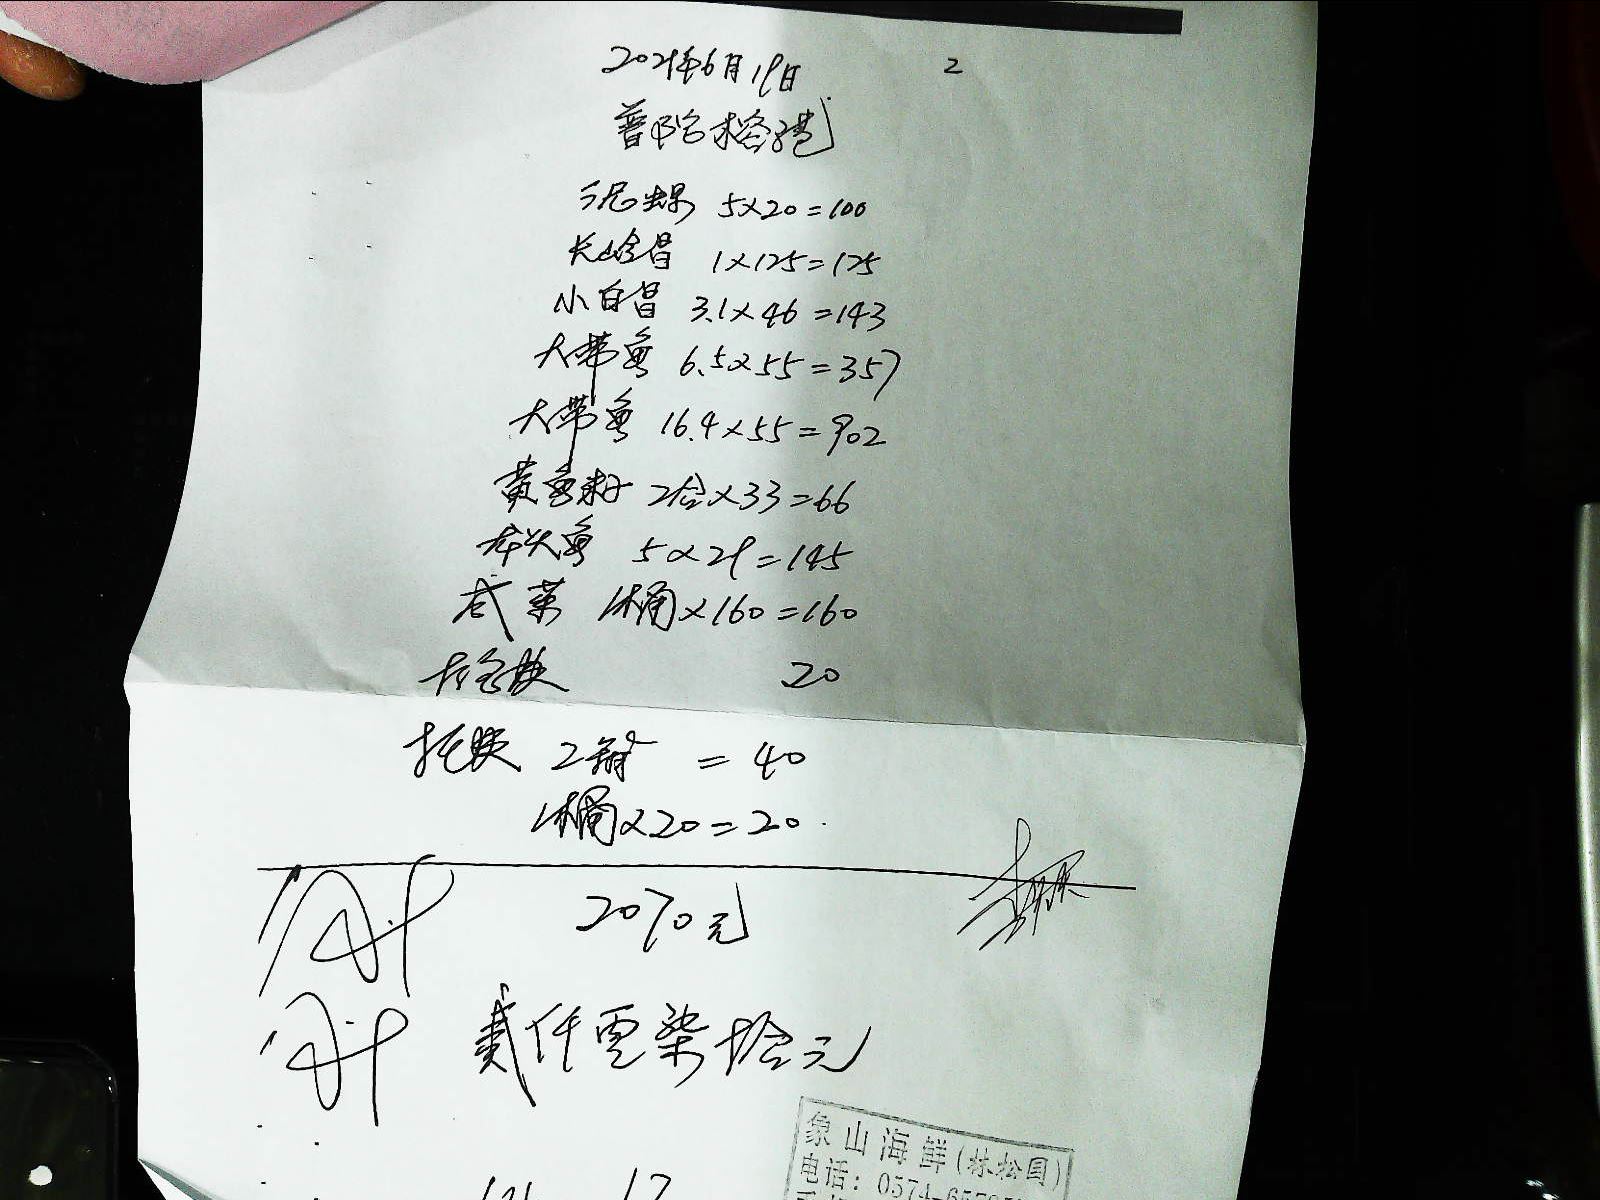 2021年6月19日 2
普陀榕港
泥螺 5×20=100
长山今昌 1×125=125
小白昌 3.1×46=143
大带鱼 6.5×55=357
大带鱼 16.4×55=902
黄鱼籽 2合×33=66
龙头鱼 5×29=145
咸菜 1桶×160=160
20
托费 2箱 =40
1桶×20=20
合计 2070元
合计 贰仟零柒拾元
象山海鲜(林松国)
电话: 0574-65